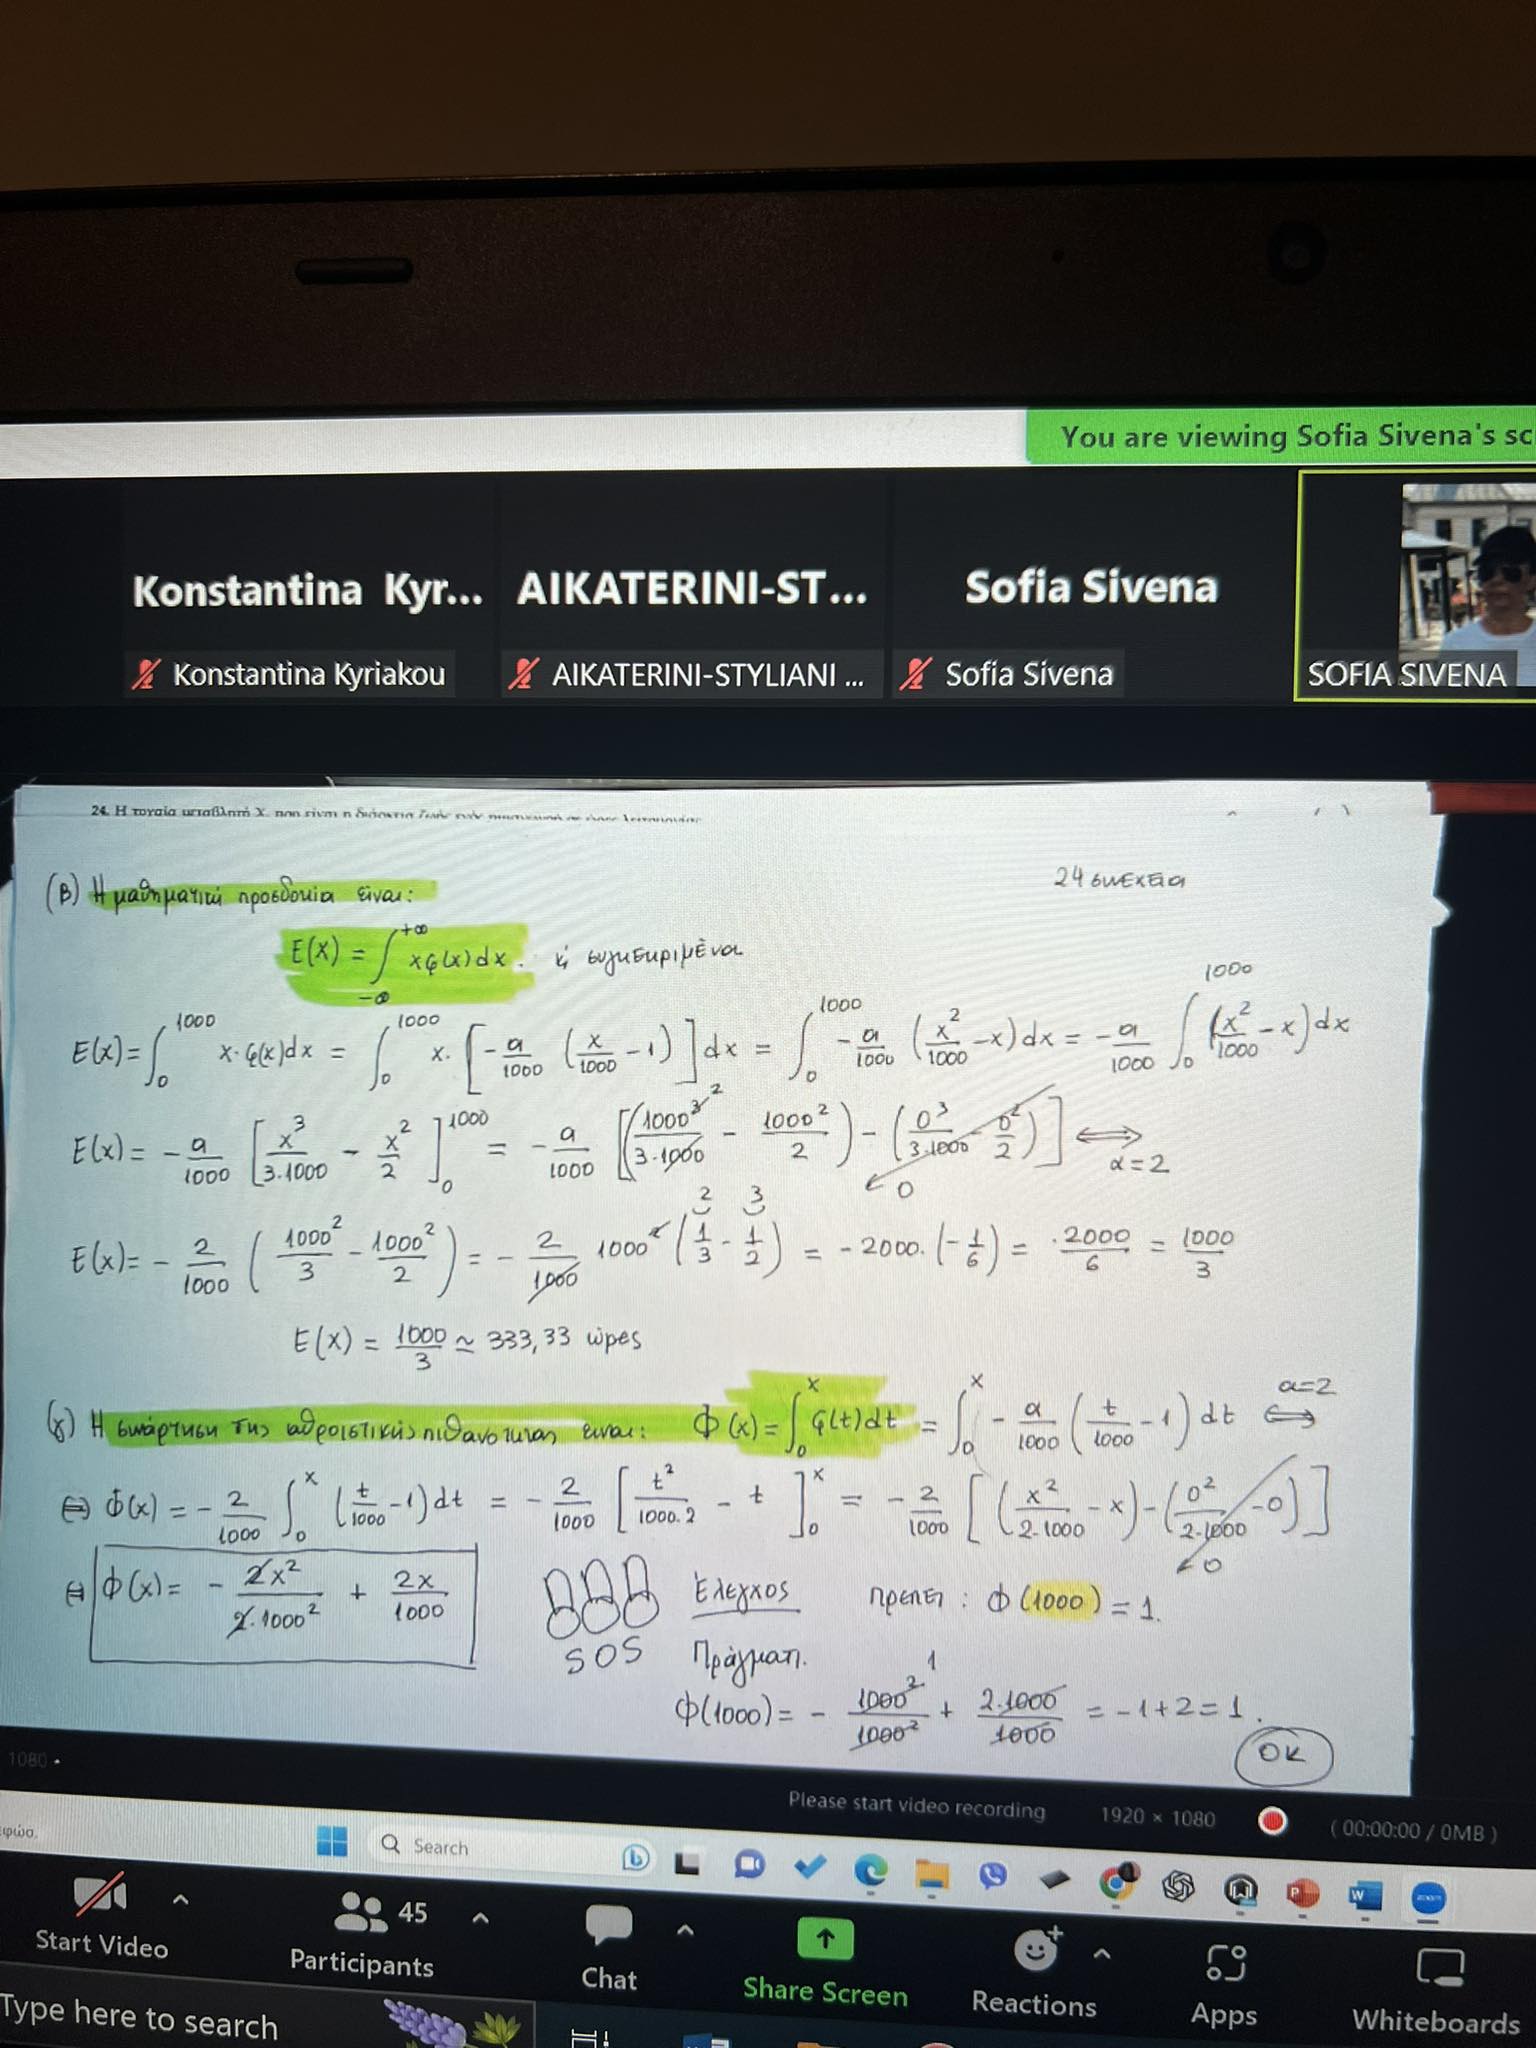 You are viewing Sofia Sivena's sc
Konstantina Kyr...
AIKATERINI-ST...
Sofia Sivena
Konstantina Kyriakou
AIKATERINI-STYLIANI ...
Sofia Sivena
SOFIA SIVENA
24. Η τυχαία μεταβλητή Χ, που είναι η διάρκεια ζωής ενός
(β) Η μαθηματική προσδοκία είναι:
24 συνέχεια
E(x) = ∫_{-∞}^{+∞} xφ(x)dx. κ' συγκεκριμένα
E(x) = ∫_0^{1000} x·φ(x)dx = ∫_0^{1000} x·[-a/1000 (x/1000 - 1)]dx = ∫_0^{1000} -a/1000 (x²/1000 - x)dx = -a/1000 ∫_0^{1000} (x²/1000 - x)dx
E(x) = -a/1000 [x³/3·1000 - x²/2]_0^{1000} = -a/1000 [(1000³/3·1000 - 1000²/2) - (0³/3·1000 - 0²/2)] ⟺ α=2
2
0
E(x) = -2/1000 (1000²/3 - 1000²/2) = -2/1000 1000² (1/3 - 1/2) = -2000·(-1/6) = 2000/6 = 1000/3
2 3
E(x) = 1000/3 ≃ 333,33 ώρες
(γ) Η συνάρτηση της αθροιστικής πιθανότητας είναι: Φ(x) = ∫_0^x φ(t)dt = ∫_0^x -a/1000 (t/1000 - 1)dt ⟺ a=2
⟺ Φ(x) = -2/1000 ∫_0^x (t/1000 - 1)dt = -2/1000 [t²/1000·2 - t]_0^x = -2/1000 [(x²/2·1000 - x) - (0²/2·1000 - 0)]
0
⟺ Φ(x) = -2x²/2·1000² + 2x/1000
SOS
Έλεγχος πρέπει: Φ(1000) = 1.
Πράγματι.
Φ(1000) = -1000²/1000² + 2·1000/1000 = -1+2=1.
1
OK
1080
Please start video recording
1920 × 1080
(00:00:00 / 0MB)
Search
Start Video
45
Participants
Chat
Share Screen
Reactions
Apps
Whiteboards
Type here to search